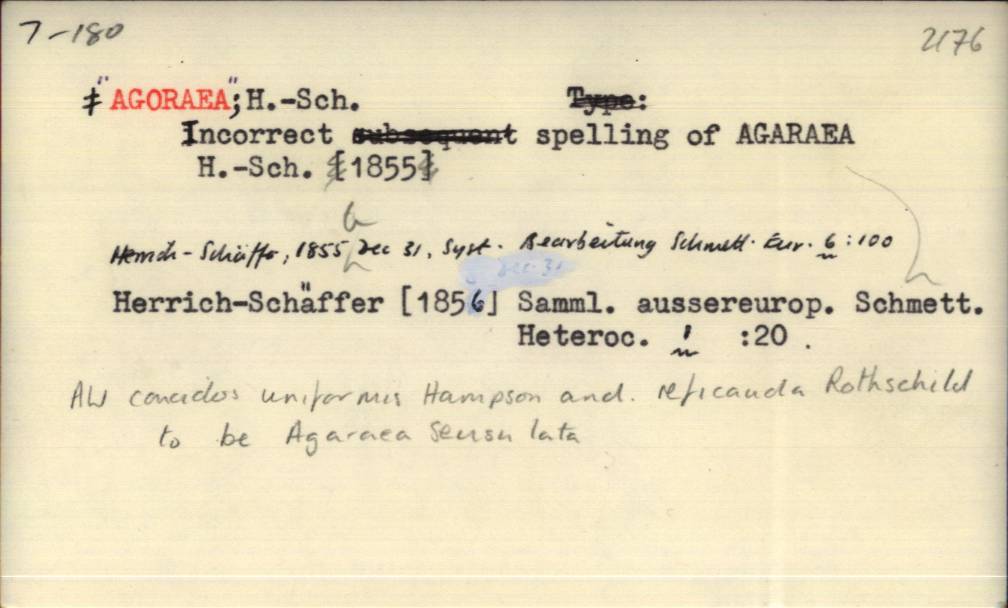 7-180
2176
‡ "AGORAEA"; H.-Sch. Type:
Incorrect subsequent spelling of AGARAEA
H.-Sch. [1855]
Herrich-Schäffer, 1855 Dec 31, Syst. Bearbeitung Schmett. Eur. 6:100
Dec 31
Herrich-Schäffer [1856] Samml. aussereurop. Schmett.
Heteroc. 1 :20.
AW considers uniformis Hampson and reficauda Rothschild
to be Agaraea sensu lata